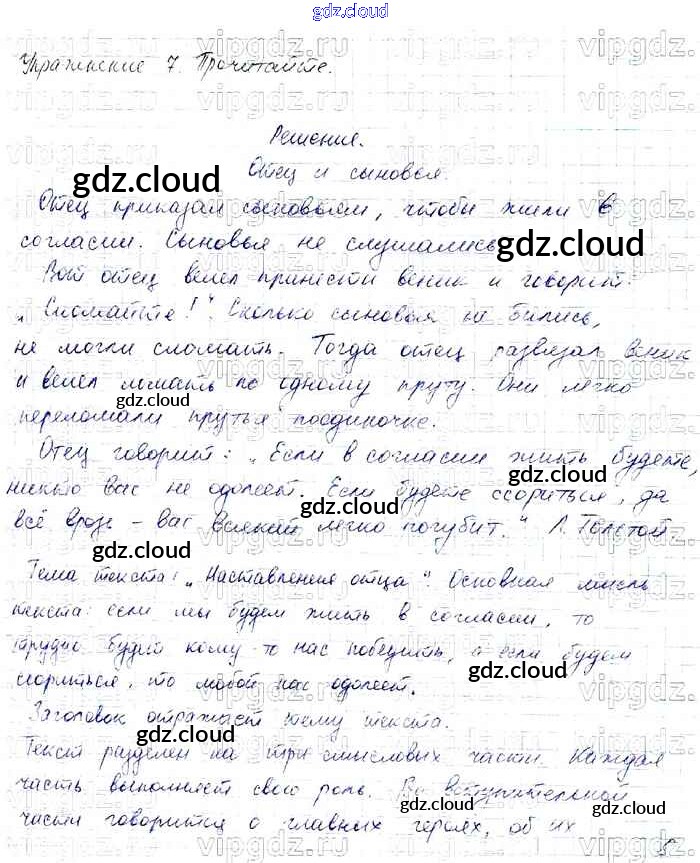 gdz.cloud
Упражнение 7. Прочитайте.
Решение.
Отец и сыновья.
Отец приказал сыновьям, чтобы жили в
согласии. Сыновья не слушались.
Вот отец велел принести веник и говорит:
„Сломайте!". Сколько сыновья не бились,
не могли сломать. Тогда отец развязал веник
и велел ломать по одному пруту. Они легко
переломали прутья поодиночке.
Отец говорит: „Если в согласии жить будете,
никто вас не одолеет. Если будете ссориться, да
всё врозь – вас всякий легко погубит." Л. Толстой.
Тема текста: „Наставления отца". Основная мысль
текста: если мы будем жить в согласии, то
трудно будет кому-то нас победить, а если будем
ссориться, то любой нас одолеет.
Заголовок отражает тему текста.
Текст разделен на три смысловых части. Каждая
часть выполняет свою роль. Во вступительной
части говорится о главных героях, об их